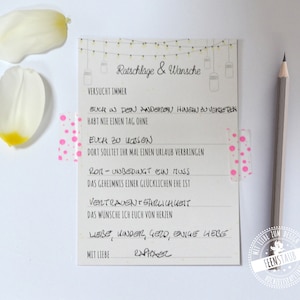 Ratschläge & Wünsche
VERSUCHT IMMER
EUCH IN DEN ANDEREN HINEINZUVERSETZEN
HABT NIE EINEN TAG OHNE
EUCH ZU KÜSSEN
DORT SOLLTET IHR MAL EINEN URLAUB VERBRINGEN
ROM - UNBEDINGT EIN MUSS
DAS GEHEIMNIS EINER GLÜCKLICHEN EHE IST
VERTRAUEN + EHRLICHKEIT
DAS WÜNSCHE ICH EUCH VON HERZEN
LIEBE, KINDER, GELD, EWIGE LIEBE
MIT LIEBE RAPHAEL
FEENSTAUB